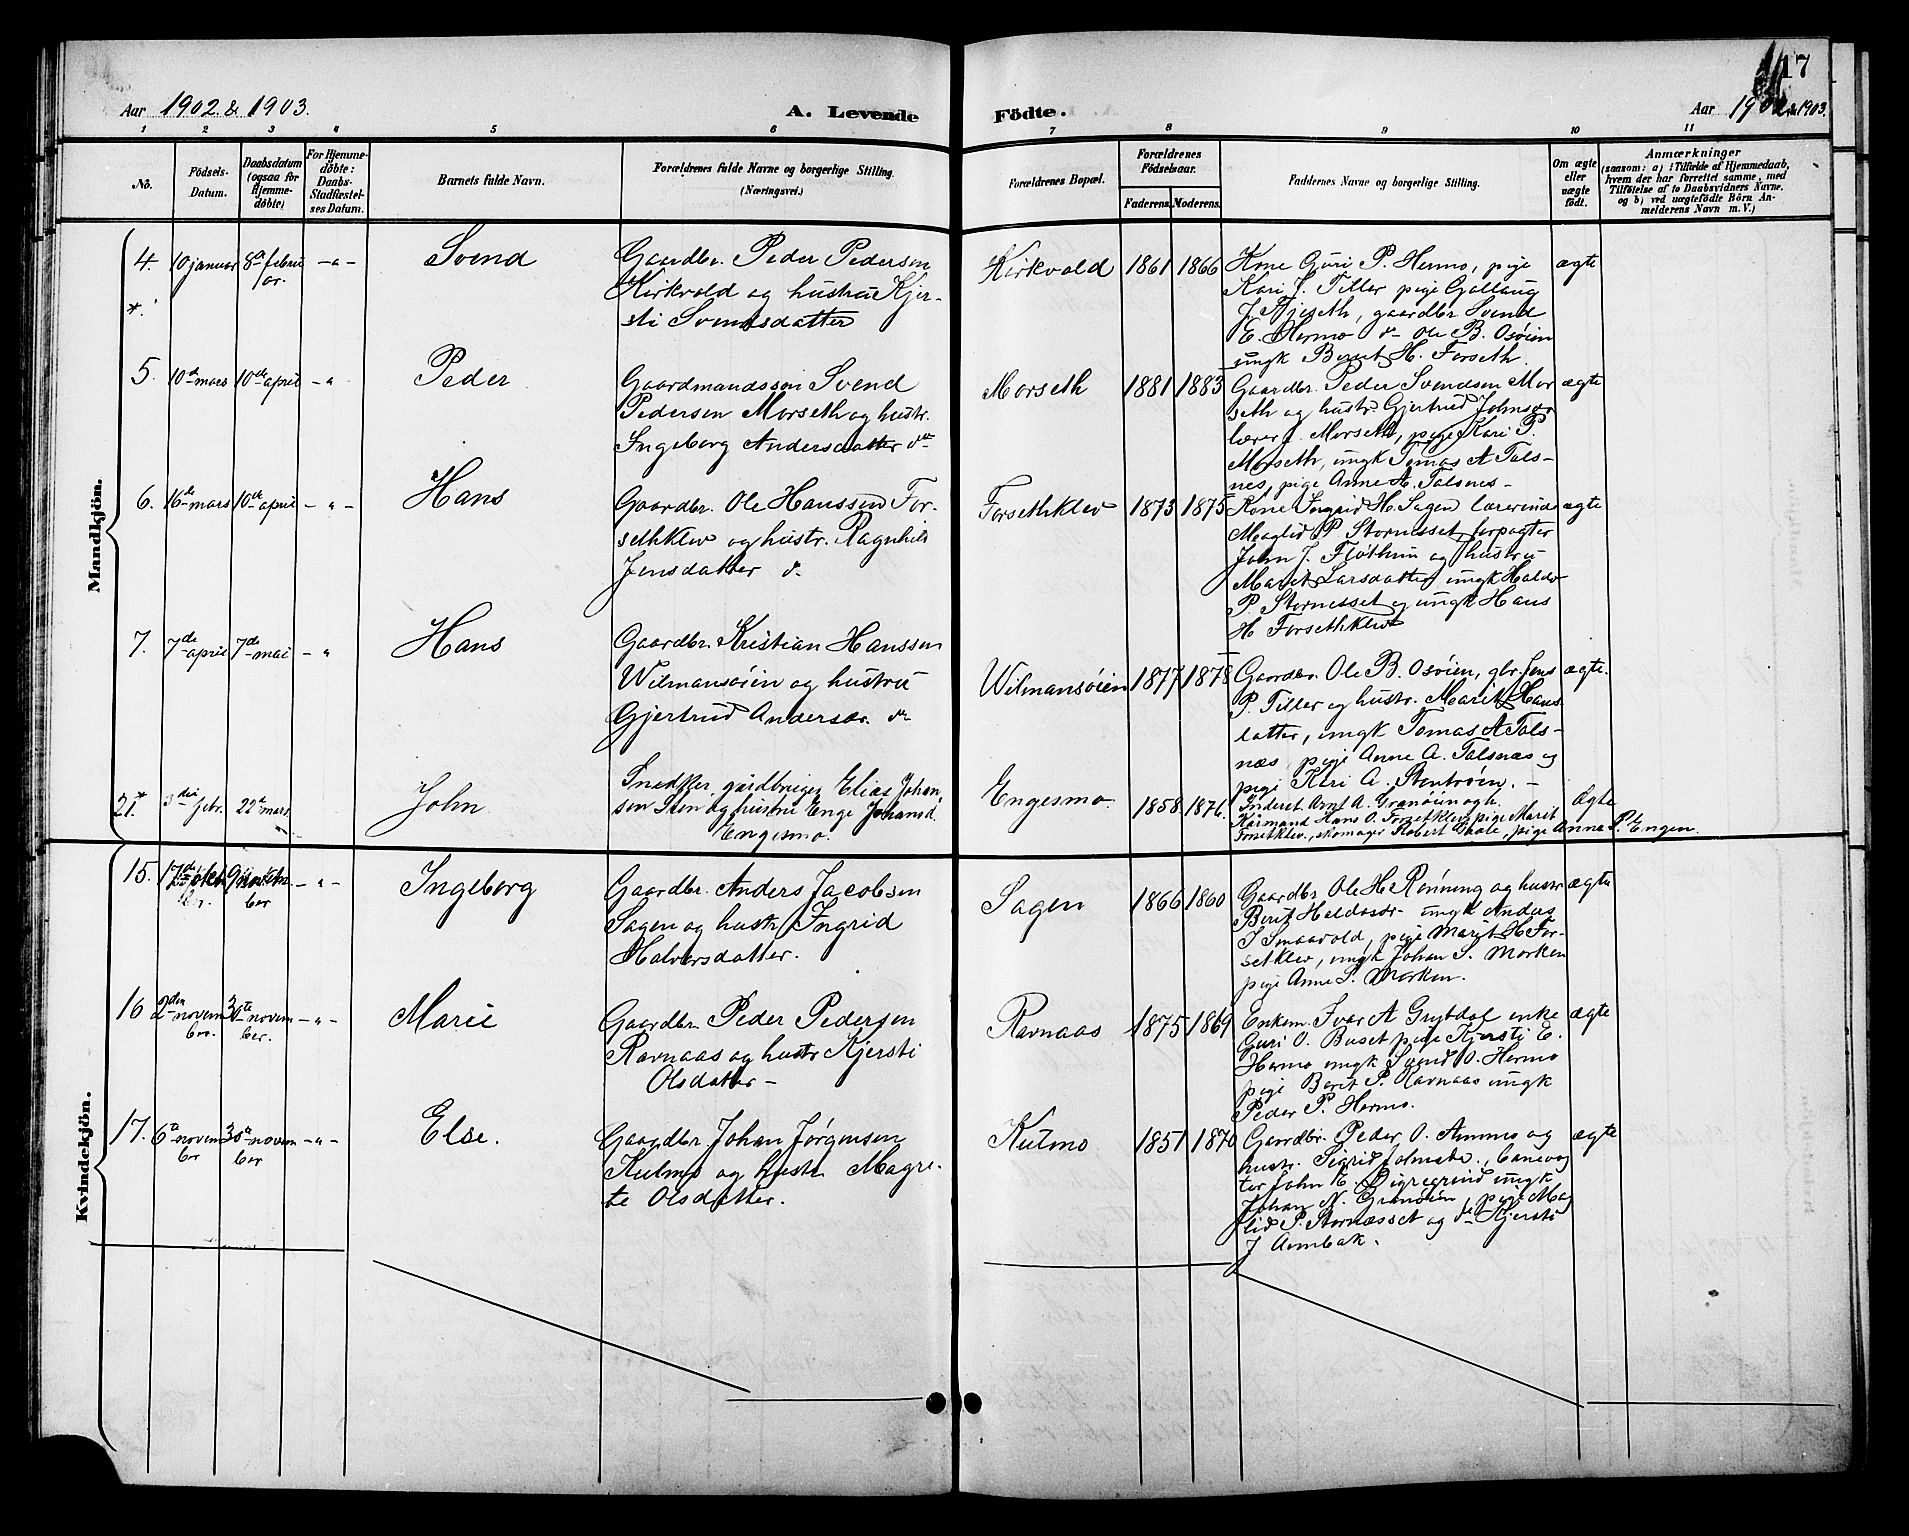 Aar 1902 & 1903.
A. Levende
Födte.
17
Aar 1902 & 1903.
1 2 3 4 5 6 7 8 9 10 11
No.
Födsels-Datum.
Daabsdatum (ogsaa for Hjemmedöbte)
For Hjemmedöbte: Daabs-Stadfæstelses Datum.
Barnets fulde Navn.
Forældrenes fulde Navne og borgerlige Stilling.
(Næringsvei.)
Forældrenes Bopæl.
Forældrenes Födselsaar.
Faderens. Moderens.
Faddernes Navne og borgerlige Stilling.
Om ægte eller uægte födt.
Anmærkninger
(saasom: a) i Tilfælde af Hjemmedaab, hvem der har forrettet samme, med Tilföielse af to Daabsvidners Navne, og b) ved uægtefödte Börn Anmelderens Navn m. V.)
Mandkjön.
4. 10 januar 8de februar. -"- Svend
Gaardbr. Peder Pedersen
Kirkvold og hustru Kjer-
sti Svendsdatter
Kirkvold 1861 1866
Kone Guri P. Hermo, pige
Kari J. Tiller pige Gollaug
J. Fjeseth, gaardbr Svend
E. Hermo & Ole B. Osöien
ungk Bernt H. Forseth.
ægte
5. 10de mars 10de april -" Peder
Gaardmandssön Svend
Pedersen Morseth og hustr.
Ingeborg Andersdatter
Morseth 1881 1883
Gaardbr. Peder Svendsen Mor
seth og hustr. Gjertrud Johnsdr
lærer J. Morseth, pige Kari P.
Morseth, ungk Tomas A Tals-
nes, pige Anne A. Talsnes -
ægte
6. 16de mars 10de april -"- Hans
Gaardbr. Ole Hanssen For-
sethklev og hustr. Ragnhild
Jensdatter
Forsethklev 1873 1875
Kone Ingrid H. Sagen lærerinde
Maglid P Stornesset, forpagter
John J. Flöthum og hustru
Marit Larsdatter, ungk Haldo
P. Stornesset og ungk Hans
H Forsethklev
ægte
7. 7de april 7de mai -" Hans
Gaardbr. Kristian Hanssen
Wilmansöien og hustru
Gjertrud Andersdr.
Wilmansöien 1877 1878
Gaardbr. Ole B. Osöien, gbr. Jens
P. Tiller og hustr. Marit Hans
datter, ungk Tomas A Tals-
næs, pige Anne A. Talsnæs og
pige Kari A. Stentröen. -
ægte.
21.* 3die febr. 22de mars John
Snedker, gårdbruger Elias Johan-
sen Sten og hustru Enge Johansd.
Engesmo.
Engesmo. 1858. 1876.
Inderst Arnt A. Granöien og h.
Kårmand Hans O. Forsetklev, pige Marit
Forsetklev, skomager Robert Daale, pige Anna P. Engen.
Ægte
Kvindekjön.
15. -"- Ingeborg
Gaardbr. Anders Jacobsen
Sagen og hustr Ingrid
Halvorsdatter.
Sagen 1866 1860
Gaardbr Ole H Rönning og hustr
Berit Haldosdr- ungk Anders
J Smaavold, pige Marit H For-
setklev, ungk Johan S. Morken
pige Anne S. Morken.
ægte
16 2den november. 30te november. -"- Marie
Gaardbr. Peder Pedersen
Ravnaas og hustr Kjersti
Olsdatter -
Ravnaas 1875 1869
Enkem. Ivar A Grytdal enke
Guri O. Buset pige Kjersti E.
Hermo ungk Svend O. Hermo
pige Berit P. Ravnaas ungk
Peder P. Hermo.
ægte
17. 6te november 30te november -"- Else.
Gaardbr. Johan Jörgensen
Kulmo og hustr. Magre-
te Olsdatter.
Kulmo 1851 1870
Gaardbr. Peder O. Ammo og
hustr. Sigrid Johnsdr., banevog
ter John E. Digregrind ungk
Johan N. Granöien, pige Mag
lid P. Stornæsset og de Kjersti
J Aunbak.
ægte